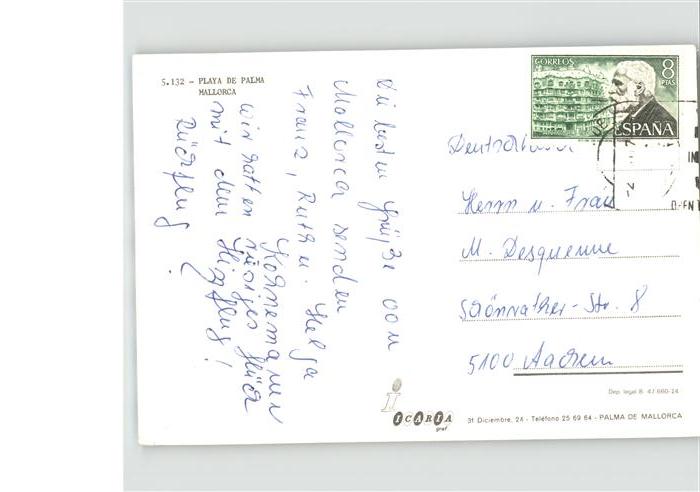 S.132 - PLAYA DE PALMA
MALLORCA
Die besten Grüße vom
Mallorca senden
Franz, Ruth u. Helga
Kornemann
Wir hatten riesiges Glück
mit dem Hinflug!
Rückflug ?
CORREOS
8
PTAS
ESPAÑA
Deutschland
Herrn u. Frau
M. Desquenne
Schönrather-Str. 8
5100 Aachen
Dep. legal B. 47.660-24
ICARIA
graf
31 Diciembre, 24 - Teléfono 25 69 64 - PALMA DE MALLORCA